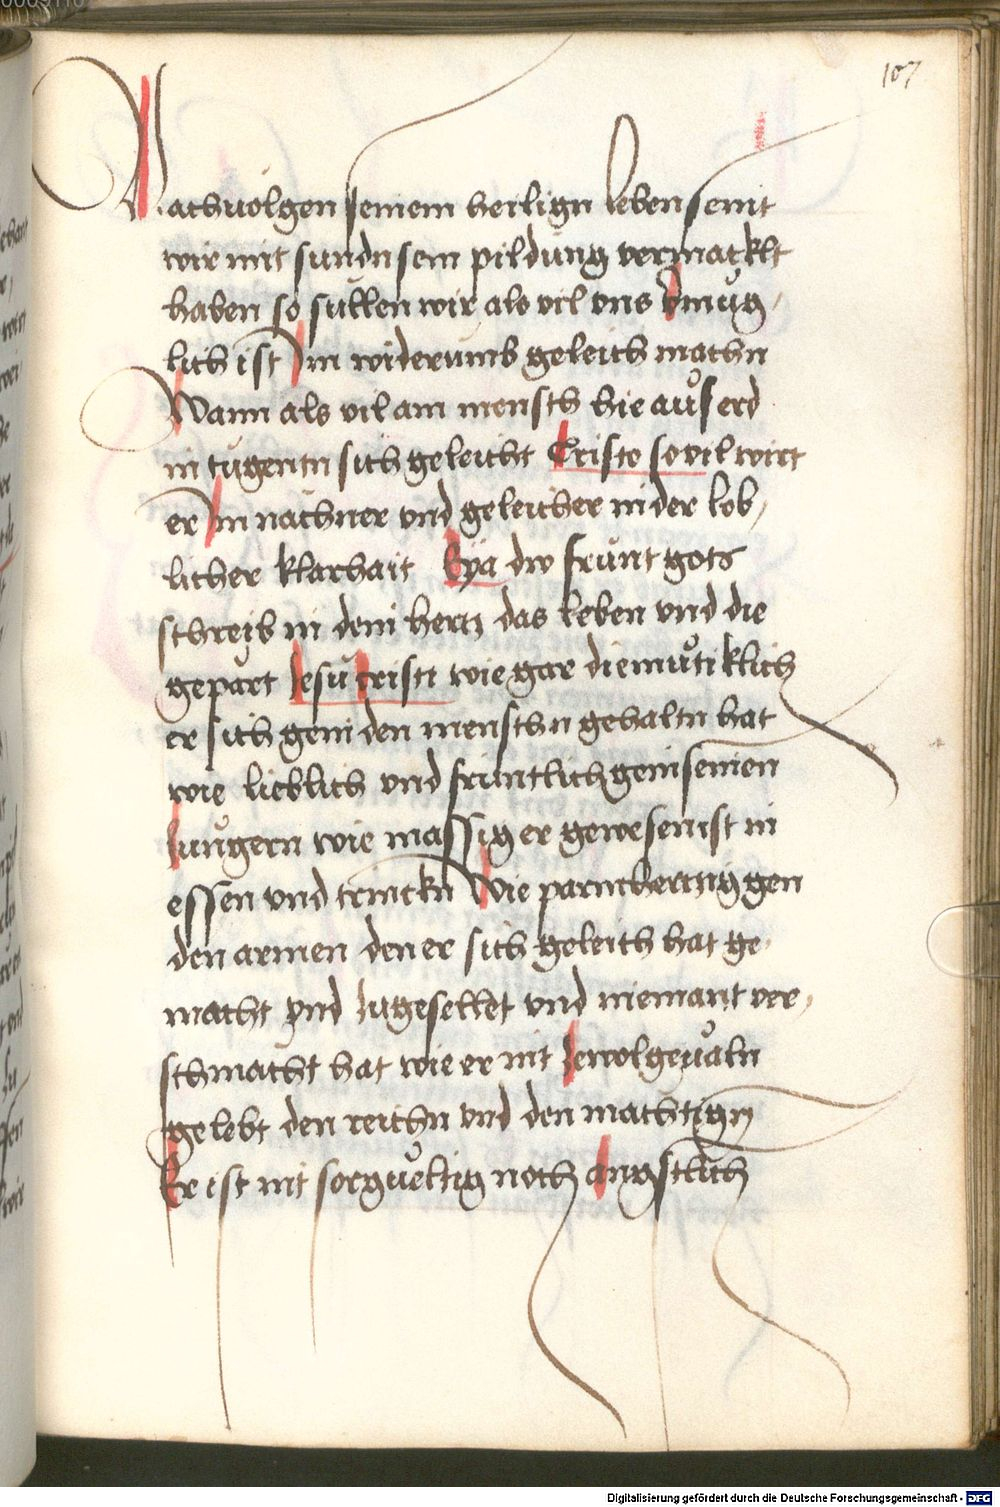 107
Nachuolgen seinem heilign leben seint
wir mit sundn sein pildung vermacklt
haben so sullen wir als vil vns vmug
lich ist Im widerumb geleich machn
Wann als vil am mensch hie auf erd
in tugentn sich geleicht Cristo so vil wirt
er Im nachner vnd geleicher in der lob
licher klarhait Eya dw frunt gots
schreib in dein hertz das leben vnd die
gepart Jesu cristi wie gar diemutiklich
er sich gein den menschn gehaltn hat
wie lieblich vnd fruntlich gein seinen
Jungern wie massig er gewesen ist in
essen vnd trinckn Wie parmhertzig gen
den armen den er sich geleich hat ge
macht vnd zugesellet vnd niemant ver
schmacht hat wie er nit zewolgeualn
gelebt den reichn vnd den machtign
Er ist nit sorgueltig noch angstlich
Digitalisierung gefördert durch die Deutsche Forschungsgemeinschaft - DFG